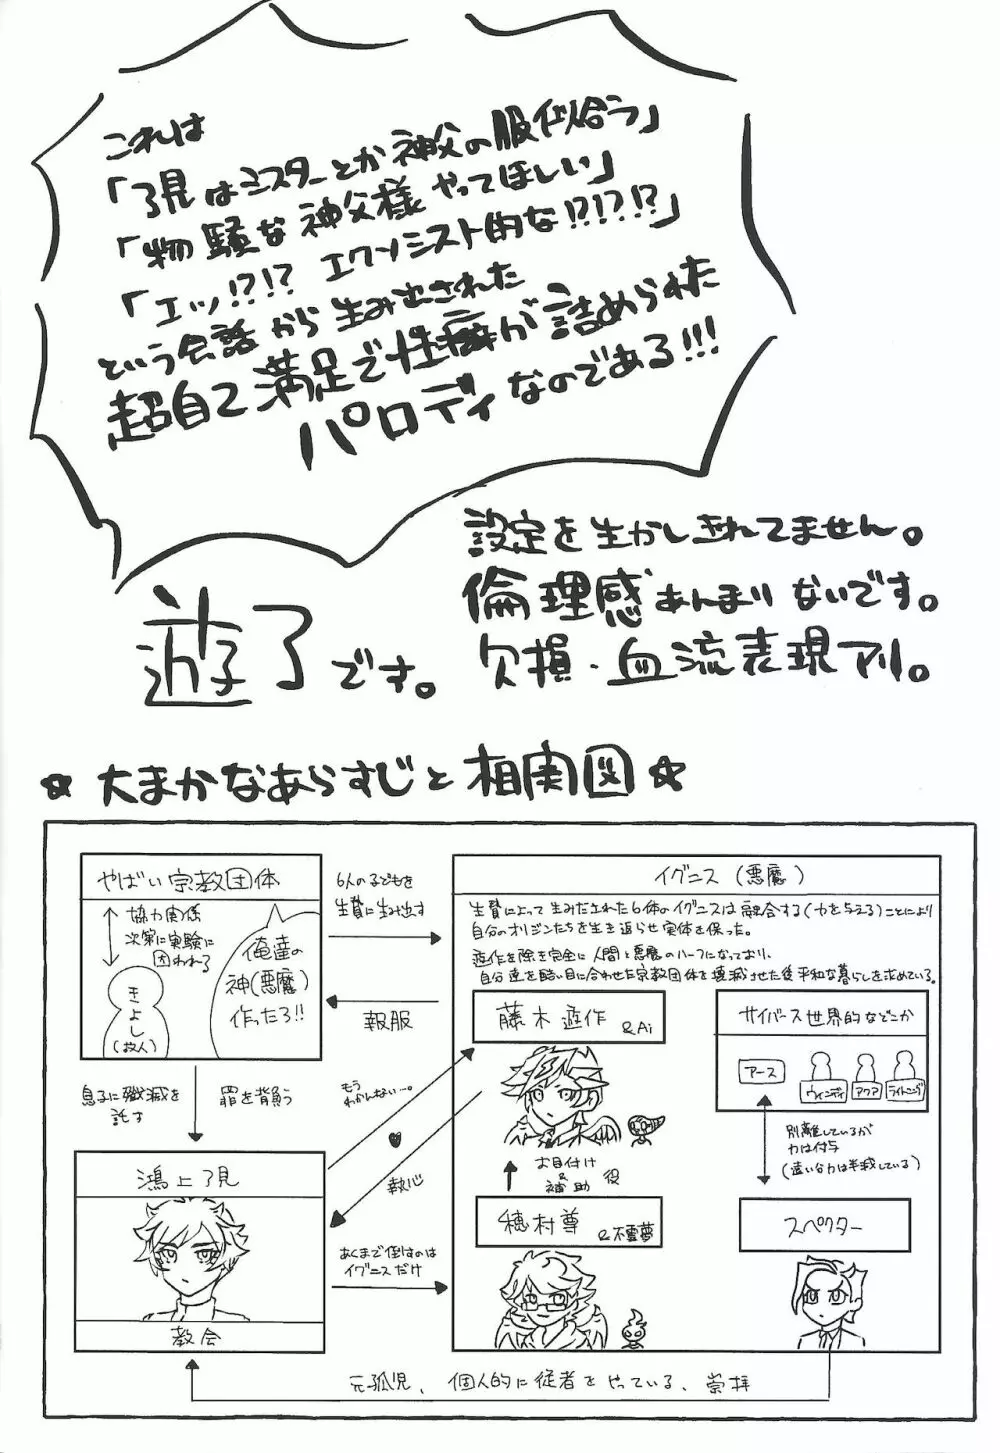 これは
「了見はミスターとか神父の服似合う」
「物騒な神父様やってほしい」
「エッ!?!? エクソシスト的な!?!?!?」
という会話から生み出された
超自己満足で性癖が詰められた
パロディなのである!!!
設定を生かしきれてません。
倫理感あんまりないです。
欠損・血流表現アリ。
遊了です。
☆大まかなあらすじと相関図☆
やばい宗教団体
協力関係
次第に実験に
囚われる
きよし
(故人)
俺達の
神(悪魔)
作ったろ!!
6人の子どもを
生贄に生み出す
報服
イグニス(悪魔)
生贄によって生みだされた6体のイグニスは融合する(力を与える)ことにより
自分のオリジンたちを生き返らせ実体を保った。
遊作を除き完全に人間と悪魔のハーフになっており、
自分達を酷い目に合わせた宗教団体を壊滅させた後平和な暮らしを求めている。
藤木遊作
&Ai
サイバース世界的などこか
アース
ウィンディ
アクア
ライトニング
別離しているが
力は付与
(遠い分力は半減している)
お目付け
&
補助
役
穂村尊
&不霊夢
スペクター
息子に殲滅を
託す
罪を背負う
もう
わかんない…。
執心
鴻上了見
教会
あくまで倒すのは
イグニスだけ
元孤児、個人的に従者をやっている、崇拝